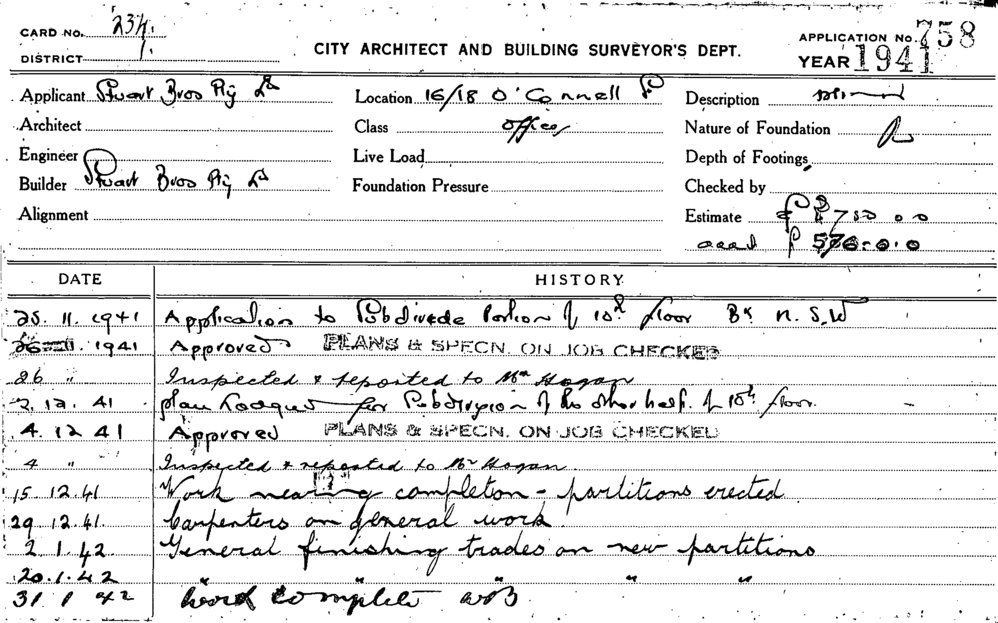 CARD No. 234.
DISTRICT 1.
CITY ARCHITECT AND BUILDING SURVEYOR'S DEPT.
APPLICATION No. 758
YEAR 1941
Applicant Stuart Bros Pty Ld
Location 16/18 O'Connell St
Description
Architect
Class offices
Nature of Foundation
Engineer
Live Load
Depth of Footings
Builder Stuart Bros Pty Ld
Foundation Pressure
Checked by
Alignment
Estimate £ 750.0.0
£ 576.0.0
DATE HISTORY
25.11.1941 Application to Subdivide Portion of 10th floor Bk N.S.W
26.11.1941 Approved PLANS & SPECN. ON JOB CHECKED
26 " Inspected & reported to Mr Hogan
2.12.41 plan for Subdivision of the other half of 10th floor.
4.12 41 Approved PLANS & SPECN. ON JOB CHECKED
4 " Inspected & reported to Mr Hogan.
15.12.41 Work nearing completion - partitions erected
29.12.41. Carpenters on general work.
2.1.42. General finishing trades on new partitions
20.1.42 " " " "
31 1 42 Work Complete